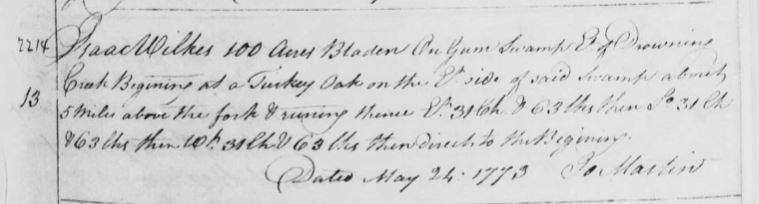 2214 Isaac Wilkes 100 Acres Bladen On Gum Swamp Et. of Drowning
Creek Begining at a Turkey Oak on the Et. side of said Swamp about
13 5 miles above the fork & runing thence Et. 31 Ch. & 63 lks then So. 31 Ch
& 63 lks then Wt. 31 Ch & 63 lks then direct to the Begining.
Dated May 24: 1773 Jo Martin